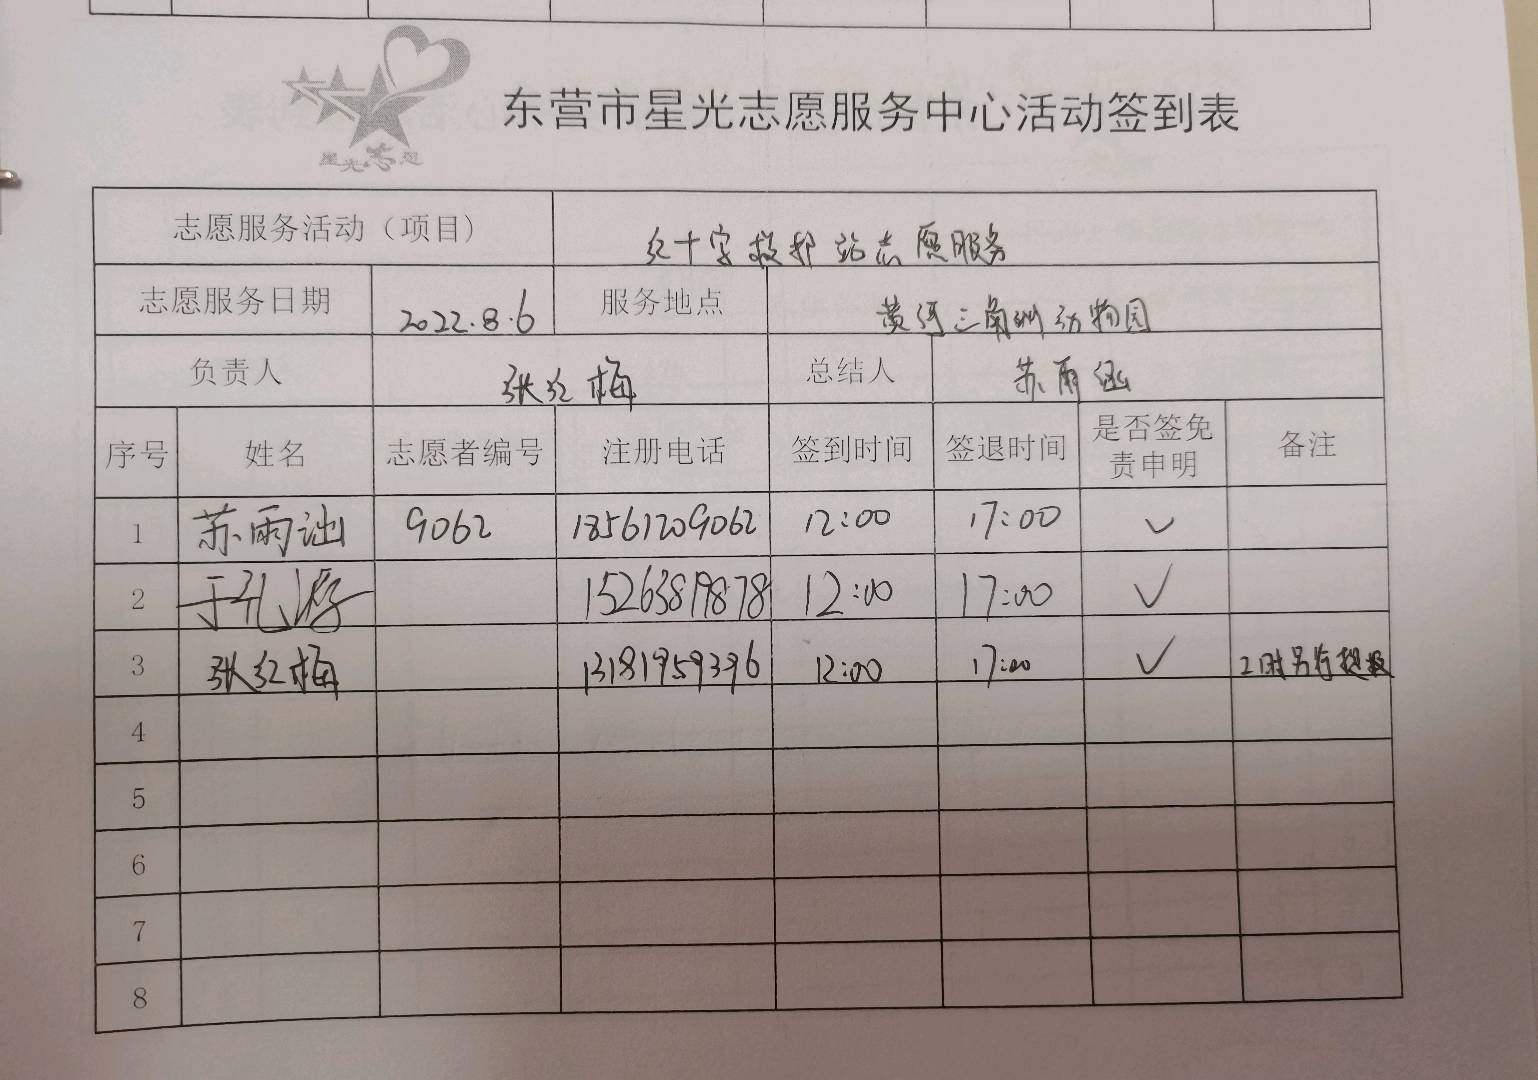 星光志愿
东营市星光志愿服务中心活动签到表
志愿服务活动（项目） 红十字救护站志愿服务
志愿服务日期 2022.8.6 服务地点 黄河三角洲动物园
负责人 张红梅 总结人 苏雨涵
序号 姓名 志愿者编号 注册电话 签到时间 签退时间 是否签免责申明 备注
1 苏雨 9062 18561209062 12:00 17:00 ✓
2 于孔 15263819878 12:00 17:00 ✓
3 张红梅 13181959396 12:00 17:00 ✓ 工时另行提报
4
5
6
7
8